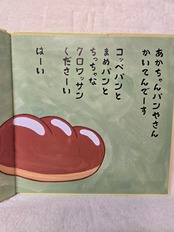 あかちゃんパンやさん
かいてんでーす
コッペパンと
まめパンと
ちっちゃな
クロワッサン
くださーい
はーい